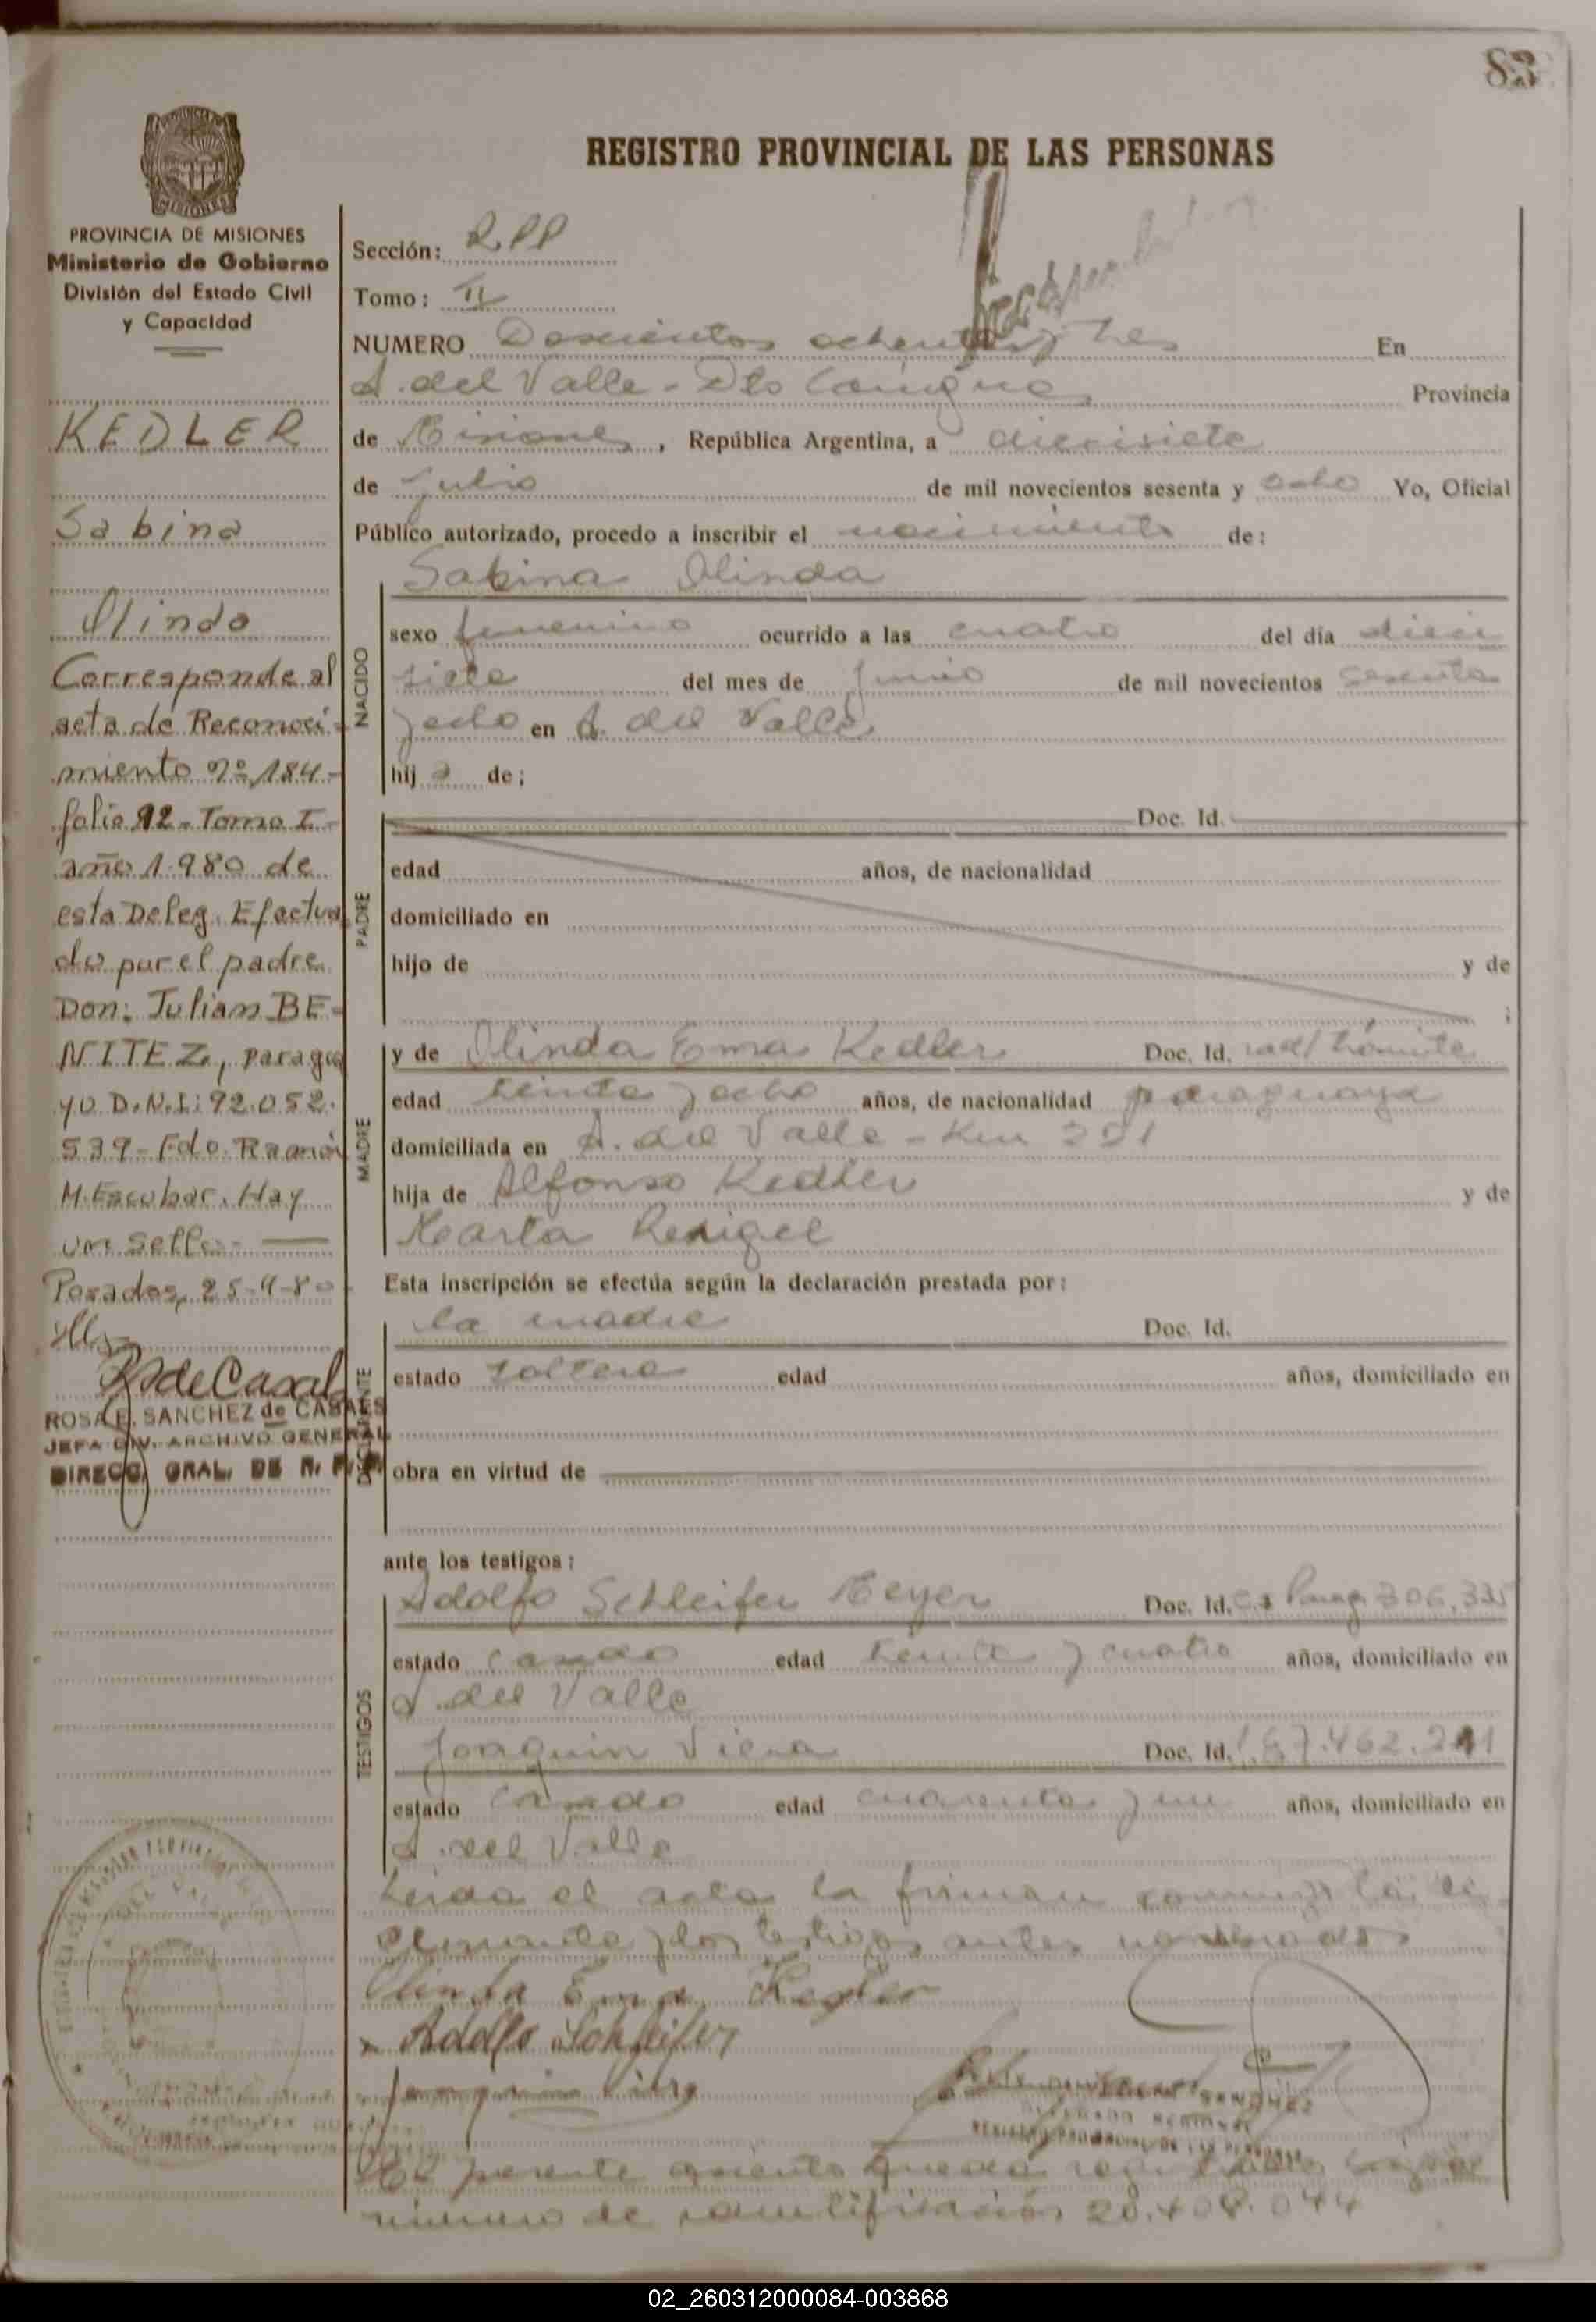 83
REGISTRO PROVINCIAL DE LAS PERSONAS
PROVINCIA DE MISIONES
MISIONES
PROVINCIA DE MISIONES
Ministerio de Gobierno
División del Estado Civil
y Capacidad
KEDLER
Sabina
Olinda
Corresponde al
acta de Reconoci-
miento nº 184-
folio 92- Tomo I-
año 1.980 de
esta Deleg. Efectua
do por el padre
Don: Julian BE-
NITEZ, paragua
yo D.N.I: 92.052.
539- Fdo. Ramón
M. Escobar. Hay
un sello-
Posadas, 25-9-80
ROSA E. SANCHEZ de CASALES
JEFA DIV. ARCHIVO GENERAL
DIRECC. GRAL. DE R. P. P.
Sección: R.PP
Tomo: II
NUMERO Doscientos ochenta y tres En
A. del Valle - Dto Cainguas Provincia
de Misiones, República Argentina, a diecisiete
de Julio de mil novecientos sesenta y ocho Yo, Oficial
Público autorizado, procedo a inscribir el nacimiento de:
Sabina Olinda
NACIDO
sexo femenino ocurrido a las cuatro del día dieci
siete del mes de Junio de mil novecientos sesenta
y ocho en A. del Valle
hij a de;
PADRE
Doc. Id.
edad años, de nacionalidad
domiciliado en
hijo de y de
;
MADRE
y de Olinda Ema Kedler Doc. Id. rad/trámite
edad treinta y ocho años, de nacionalidad paraguaya
domiciliada en A. del Valle - Km 221
hija de Alfonso Kedler y de
Marta
Esta inscripción se efectúa según la declaración prestada por:
la madre Doc. Id.
estado soltera edad años, domiciliado en
obra en virtud de
ante los testigos:
TESTIGOS
Adolfo Schleifer Meyer Doc. Id. C.I Parag. 306.335
estado casado edad treinta y cuatro años, domiciliado en
A. del Valle
Joaquin Viera Doc. Id. 7.462.211
estado casado edad cuarenta y un años, domiciliado en
A. del Valle
Leida el acta la firman conmigo la de
clarante y los testigos antes nombrados
Olinda Ema Kedler
Adolfo Schleifer
Joaquin Viera
SANCHEZ
REGISTRO PROVINCIAL DE LAS PERSONAS
El presente asiento queda registrado bajo
número de identificación 20.408.044
02_260312000084-003868